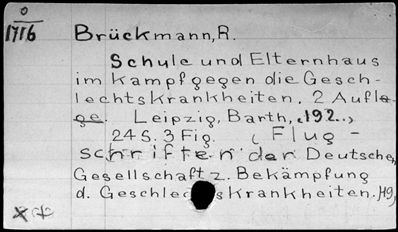 0
1716
Brückmann, R.
Schule und Elternhaus
im Kampf gegen die Gesch-
lechtskrankheiten. 2 Aufla-
ge. Leipzig, Barth, (192..)
24 S. 3 Fig. ( Flug-
schriften der Deutschen
Gesellschaft z. Bekämpfung
d. Geschlechtskrankheiten. H9)